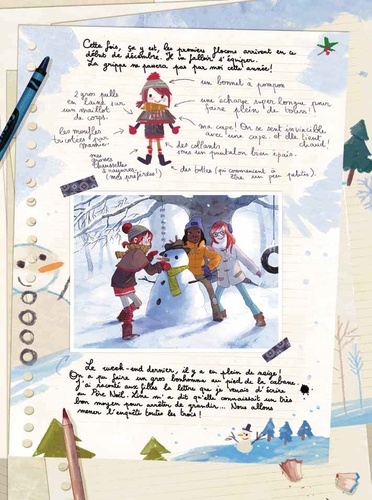 Cette fois, ça y est, les premiers flocons arrivent en ce
début de décembre. Il va falloir s'équiper.
La grippe ne passera pas par moi cette année !
un bonnet à pompon
2 gros pulls
en laine sur
un maillot
de corps.
une écharpe super longue pour
faire plein de tours !
les moufles
tricotées par
mamie.
ma cape ! On se sent invincible
avec une cape, et elle tient
chaud !
des collants
sous un pantalon bien épais.
mes
grosses
chaussettes
à rayures
(mes préférées !)
des bottes (qui commencent à
être un peu petites).
Le week-end dernier, il y a eu plein de neige !
On a pu faire un gros bonhomme au pied de la cabane.
J'ai raconté aux filles la lettre que je venais d'écrire
au Père Noël. Line m'a dit qu'elle connaissait un très
bon moyen pour arrêter de grandir... Nous allons
mener l'enquête toutes les trois !